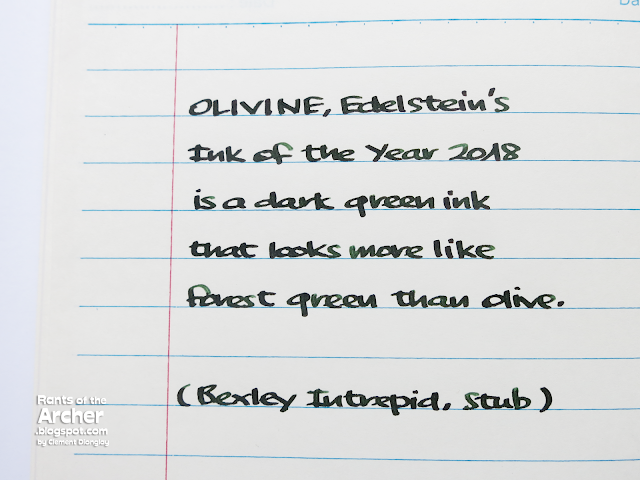 Da
OLIVINE, Edelstein's
Ink of the Year 2018
is a dark green ink
that looks more like
forest green than olive.
(Bexley Intrepid, stub)
Rants of the
Archer
.blogspot.com
by Clement Dionglay